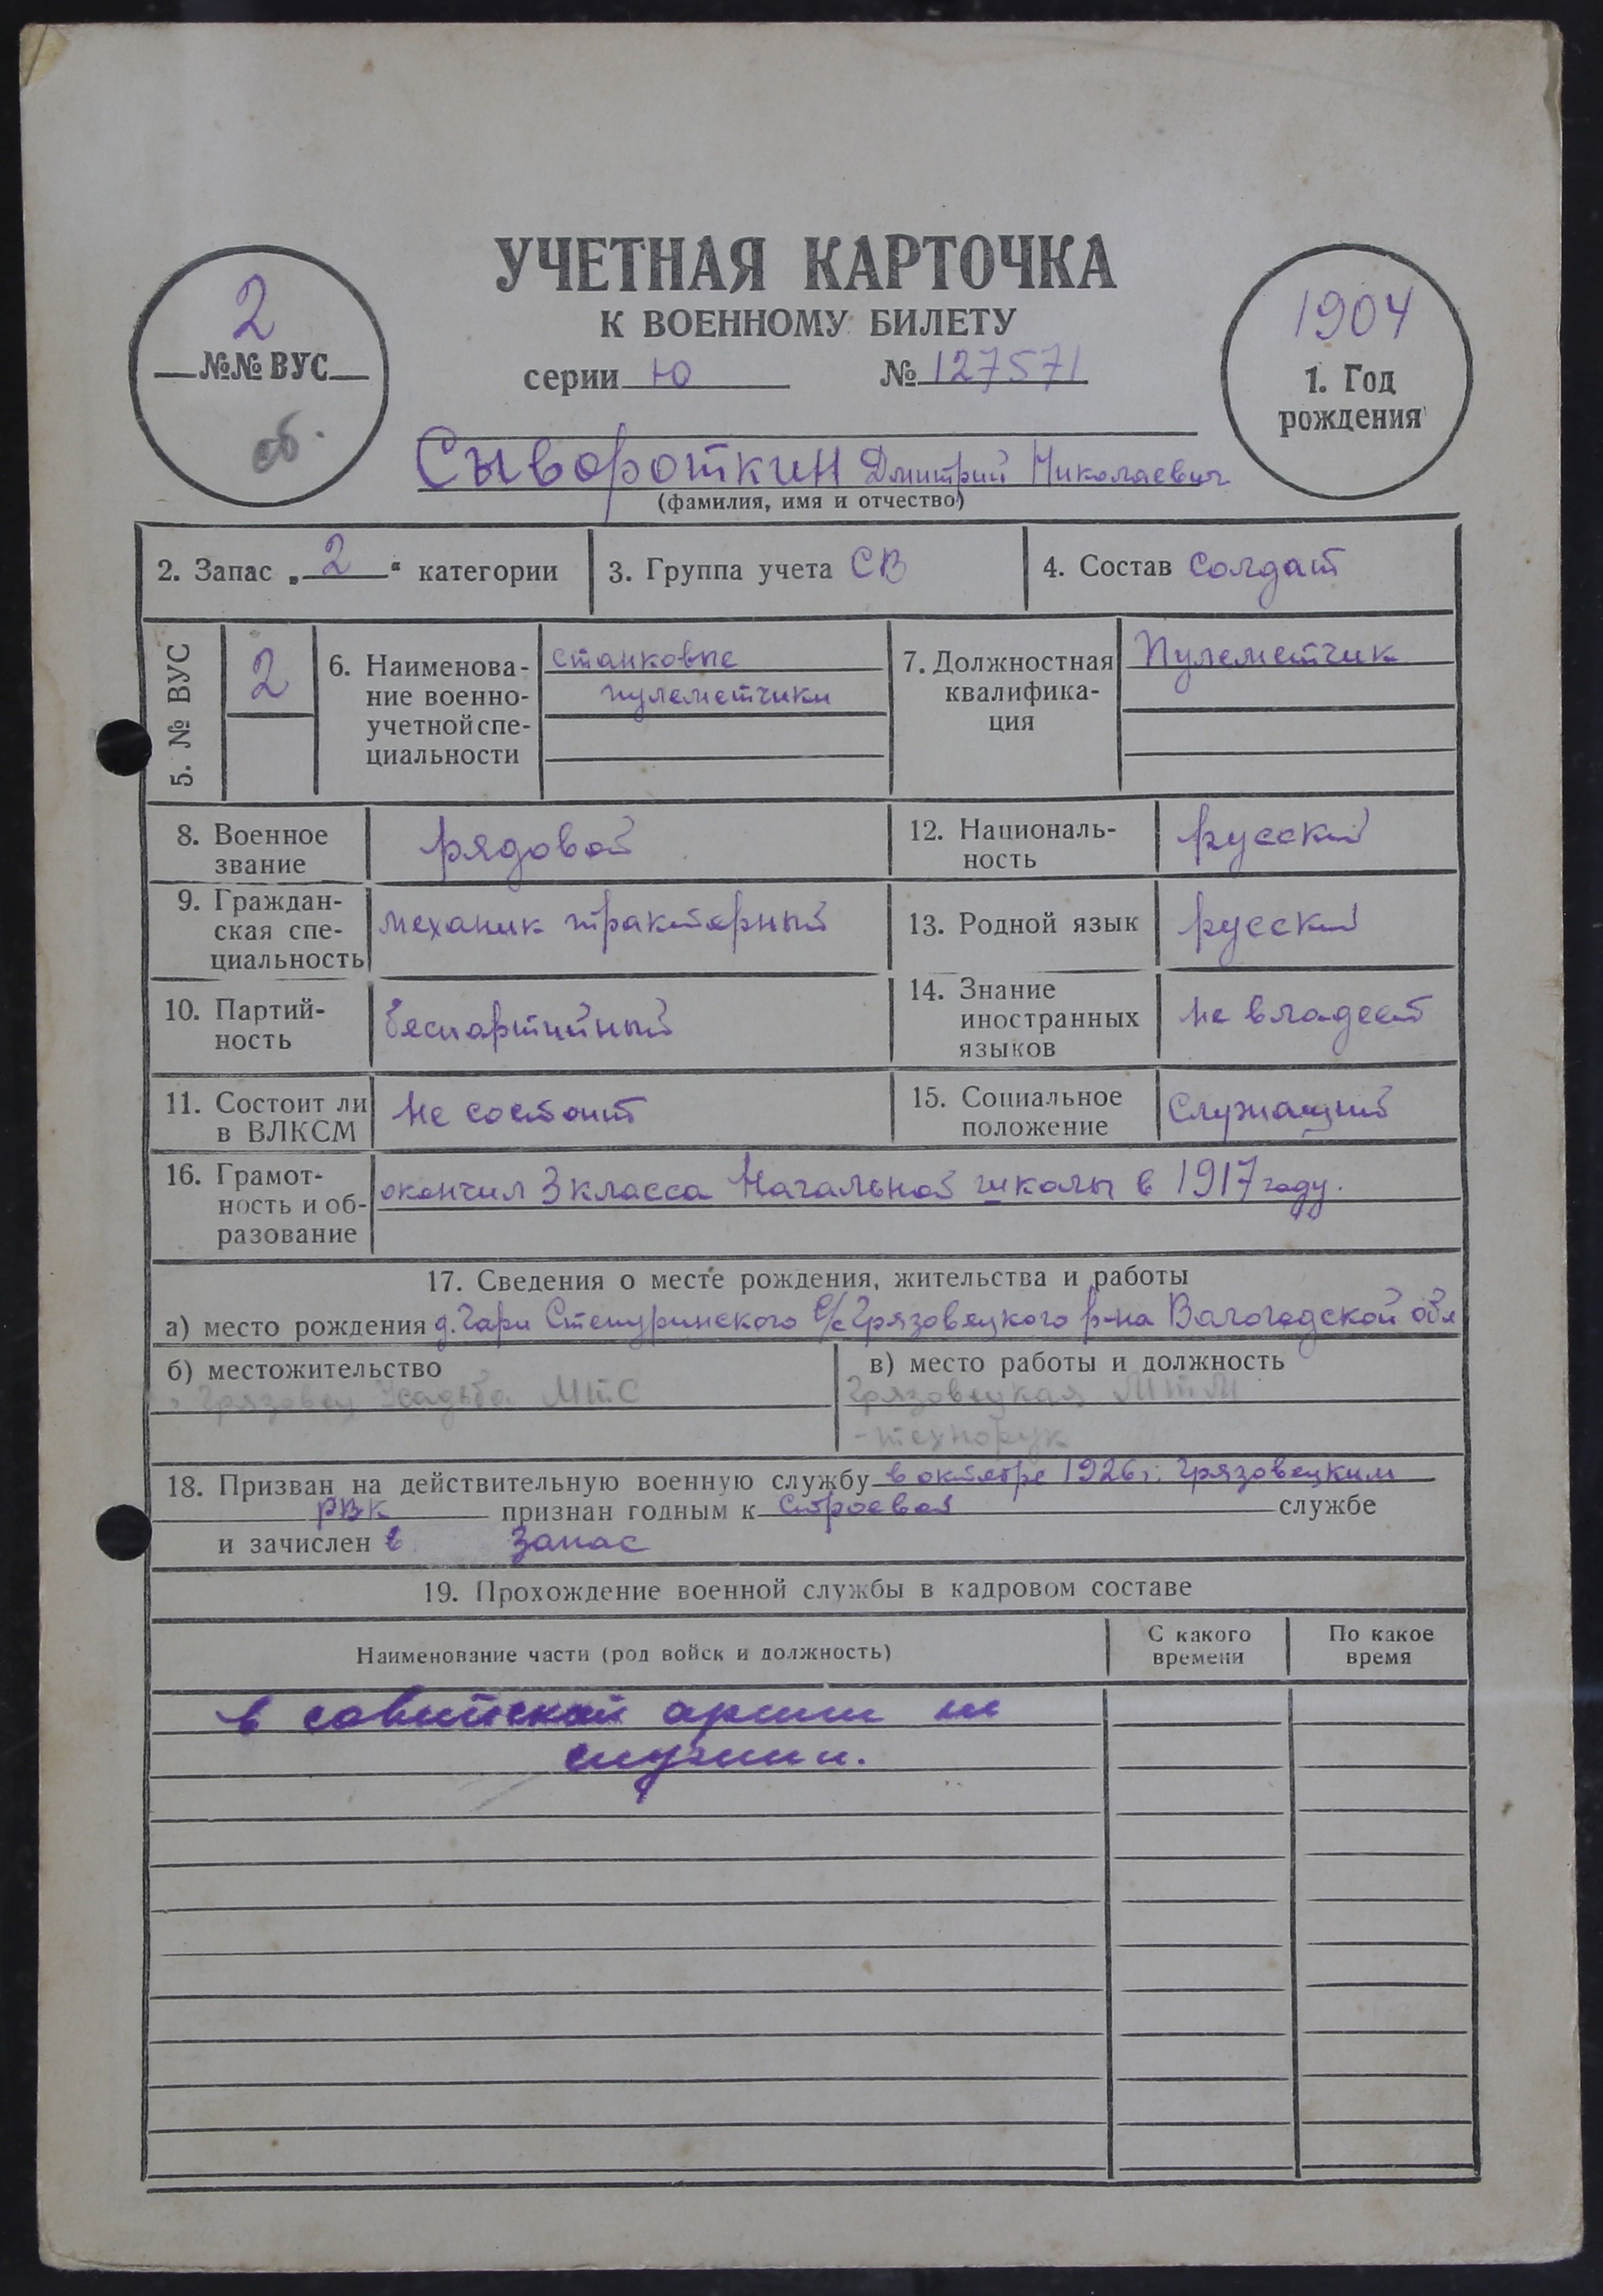 УЧЕТНАЯ КАРТОЧКА
К ВОЕННОМУ БИЛЕТУ
серии Ю № 127571
2
№№ ВУС
об.
1904
1. Год
рождения
Сывороткин Дмитрий Николаевич
(фамилия, имя и отчество)
2. Запас „ 2 “ категории
3. Группа учета СВ
4. Состав Солдат
5. № ВУС
2
6. Наименова-
ние военно-
учетной спе-
циальности
станковые
пулеметчики
7. Должностная
квалифика-
ция
Пулеметчик
8. Военное
звание
рядовой
12. Националь-
ность
русский
9. Граждан-
ская спе-
циальность
механик тракторный
13. Родной язык
русский
10. Партий-
ность
беспартийный
14. Знание
иностранных
языков
не владеет
11. Состоит ли
в ВЛКСМ
не состоит
15. Социальное
положение
Служащий
16. Грамот-
ность и об-
разование
окончил 3 класса Начальной школы в 1917 году.
17. Сведения о месте рождения, жительства и работы
а) место рождения д. Гари Степуринского с/с Грязовецкого р-на Вологодской обл
б) местожительство
Грязовец Усадьба МТС
в) место работы и должность
Грязовецкая МТМ
- технорук
18. Призван на действительную военную службу в октябре 1926 г. Грязовецким
РВК признан годным к Строевой службе
и зачислен в запас
19. Прохождение военной службы в кадровом составе
Наименование части (род войск и должность)
С какого
времени
По какое
время
в советской армии не
служил.